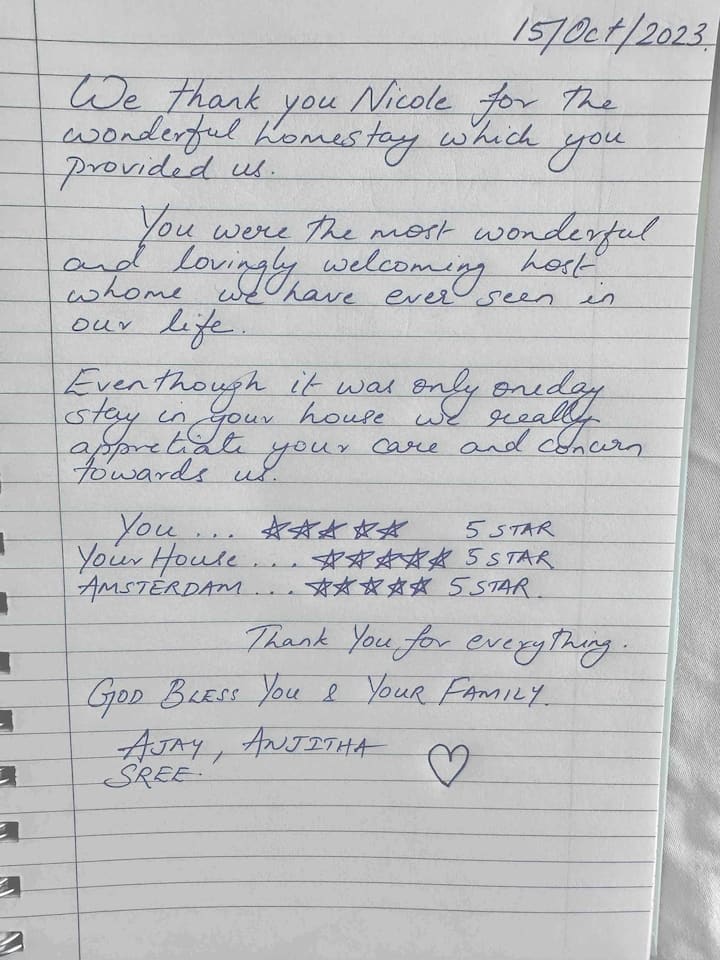 15/Oct/2023.
We thank you Nicole for the
wonderful homestay which you
provided us.
You were the most wonderful
and lovingly welcoming host
whome we have ever seen in
our life.
Eventhough it was only oneday
stay in your house we really
appretiate your care and concern
towards us.
You ... ☆☆☆☆☆ 5 STAR
Your House ... ☆☆☆☆☆ 5 STAR
AMSTERDAM ... ☆☆☆☆☆ 5 STAR.
Thank You for everything.
GOD BLESS YOU & YOUR FAMILY.
AJAY, ANJITHA ♡
SREE.